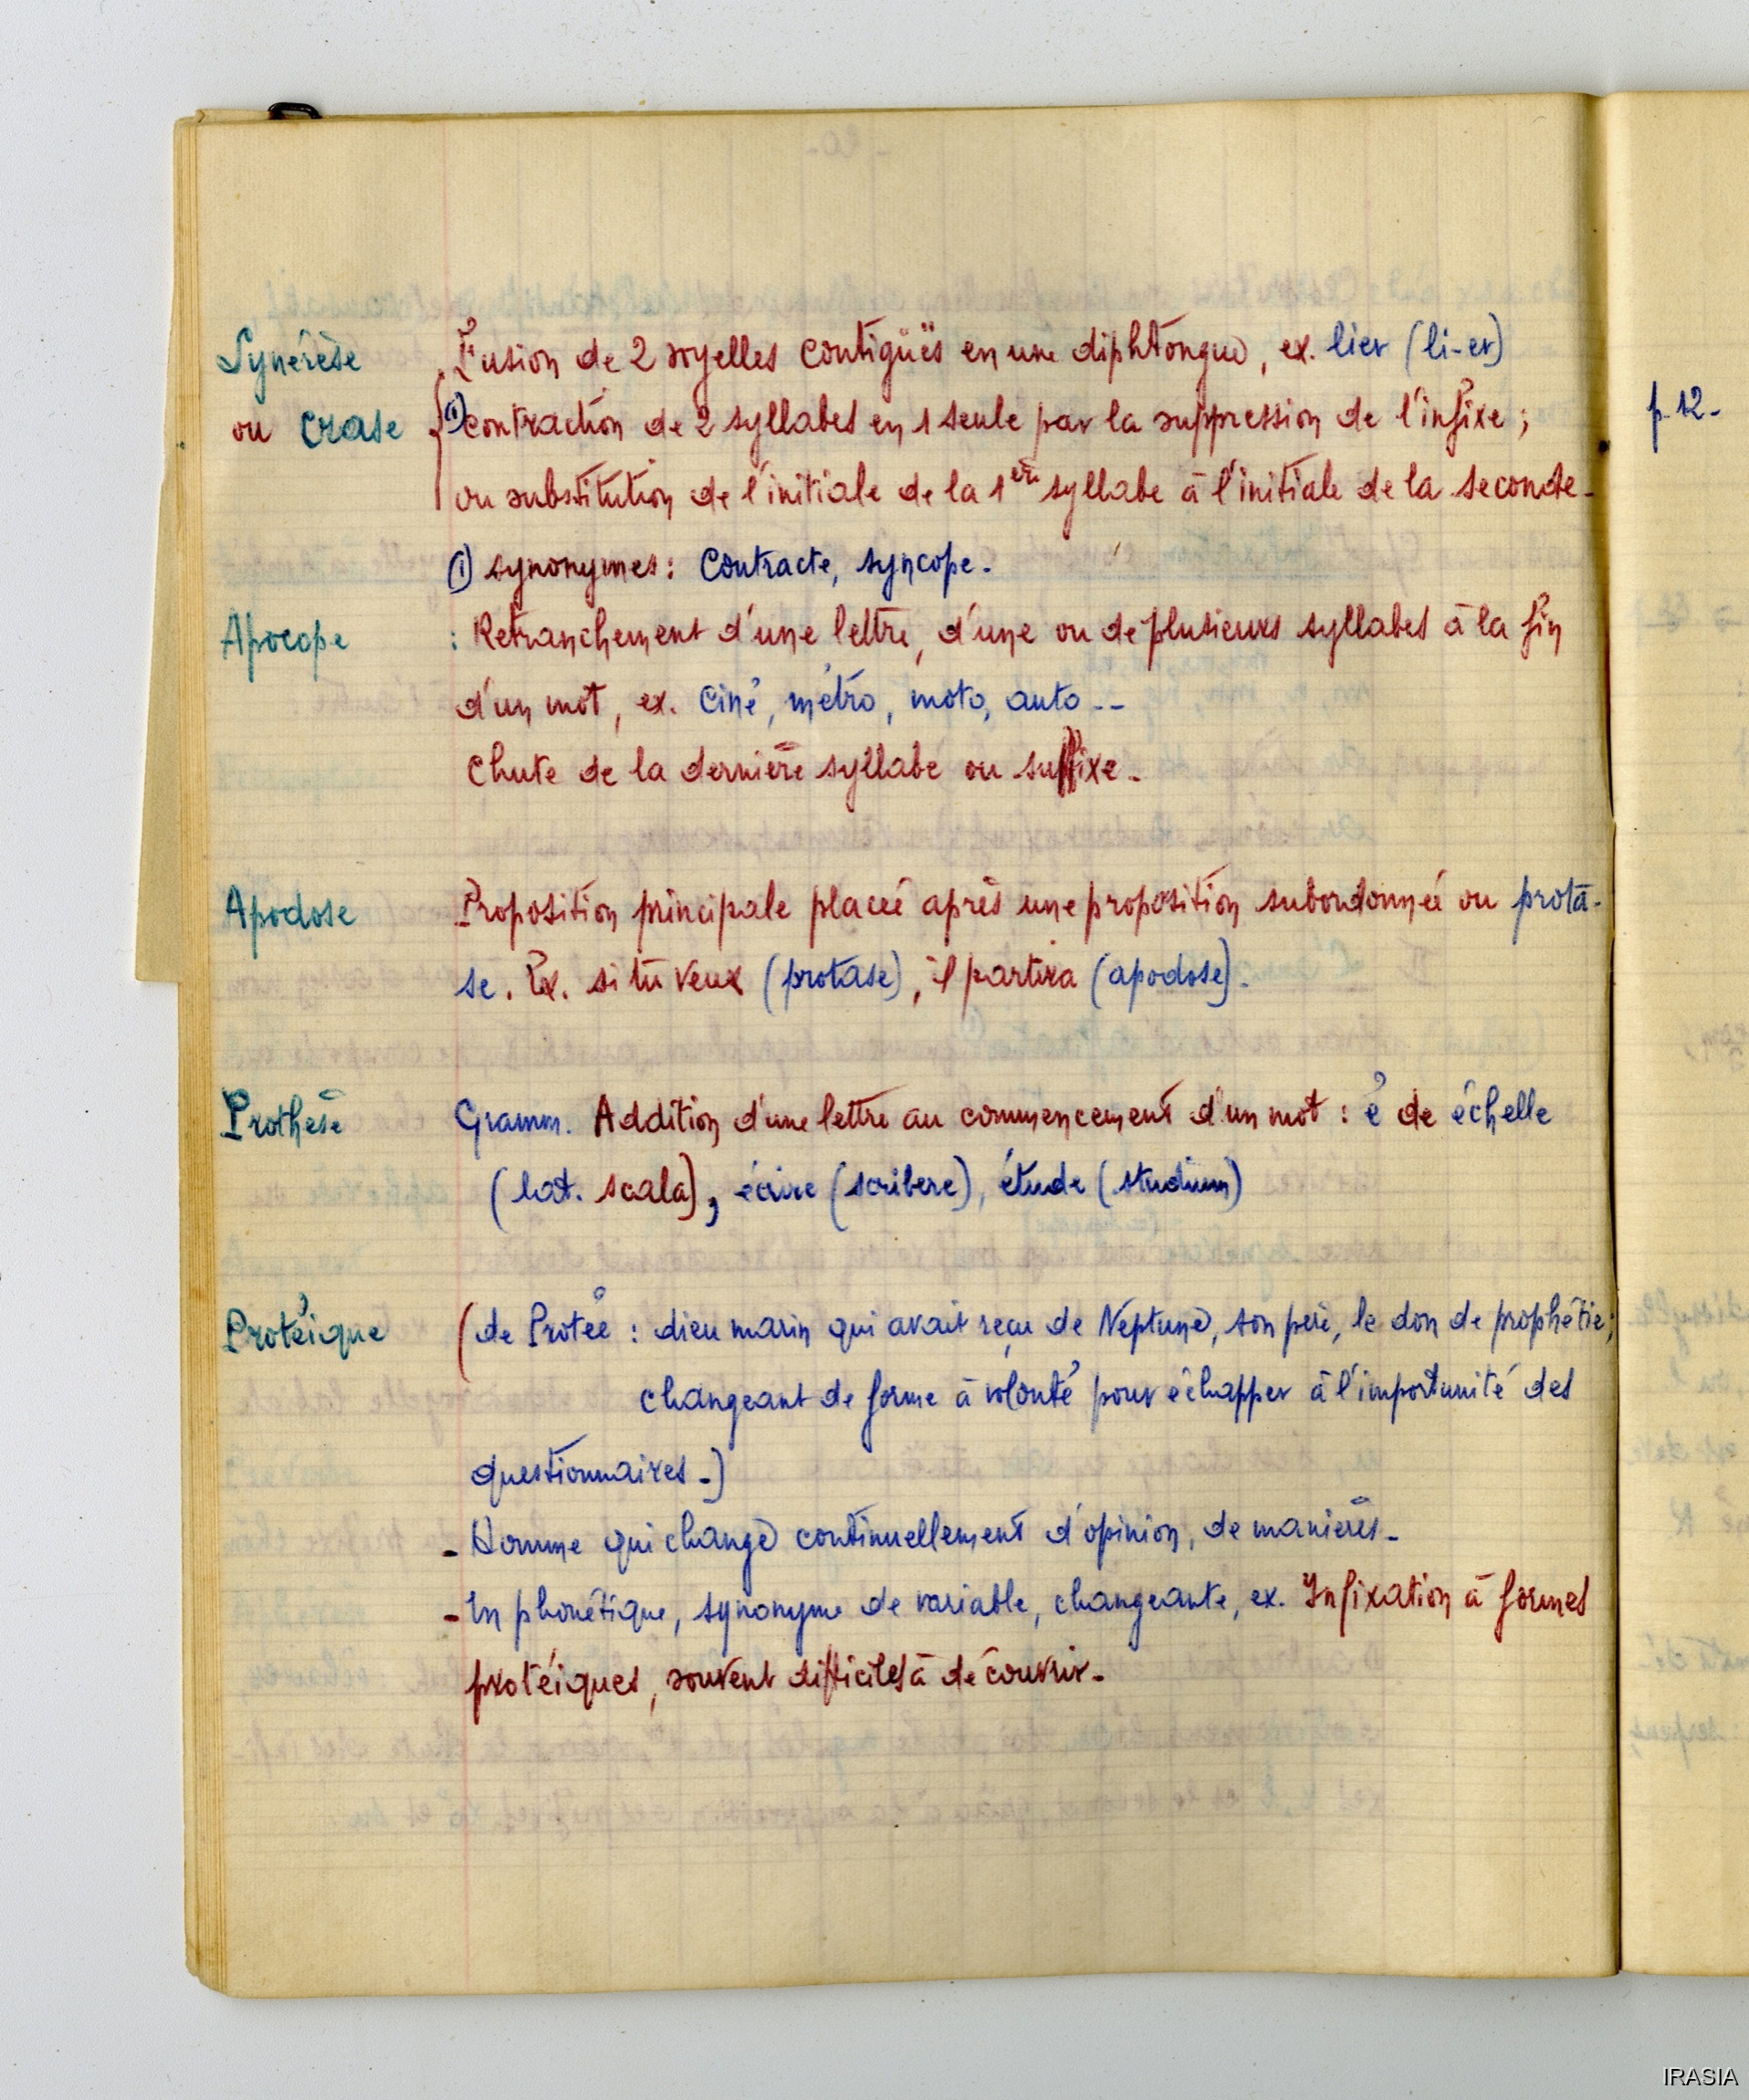 Synérèse : Fusion de 2 voyelles contigües en une diphtongue, ex. lier (li-er)
ou crase (1) contraction de 2 syllabes en 1 seule par la suppression de l'infixe ;
ou substitution de l'initiale de la 1ère syllabe à l'initiale de la seconde.
(1) synonymes : Contracte, syncope.
Apocope : Retranchement d'une lettre, d'une ou de plusieurs syllabes à la fin
d'un mot, ex. ciné, métro, moto, auto --
Chute de la dernière syllabe ou suffixe.
Apodose Proposition principale placée après une proposition subordonnée ou prota-
se. Ex. si tu veux (protase), il partira (apodose).
Prothèse Gramm. Addition d'une lettre au commencement d'un mot : é de échelle
(lat. scala), écrire (scribere), étude (studium)
Protéique (de Protée : dieu marin qui avait reçu de Neptune, son père, le don de prophétie;
changeant de forme à volonté pour échapper à l'importunité des
questionnaires.)
- Homme qui change continuellement d'opinion, de manières.
- En phonétique, synonyme de variable, changeante, ex. Infixation à formes
protéiques, souvent difficiles à découvrir.
p. 12.
IRASIA